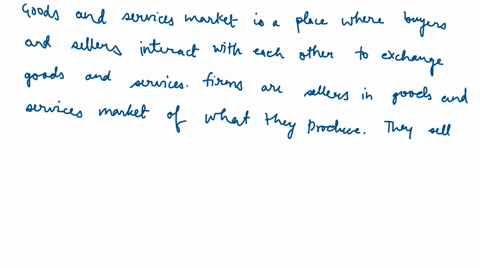 Goods and services market is a place where buyers
and sellers interact with each other to exchange
goods and services. firms are sellers in goods and
services market of what they produce. They sell